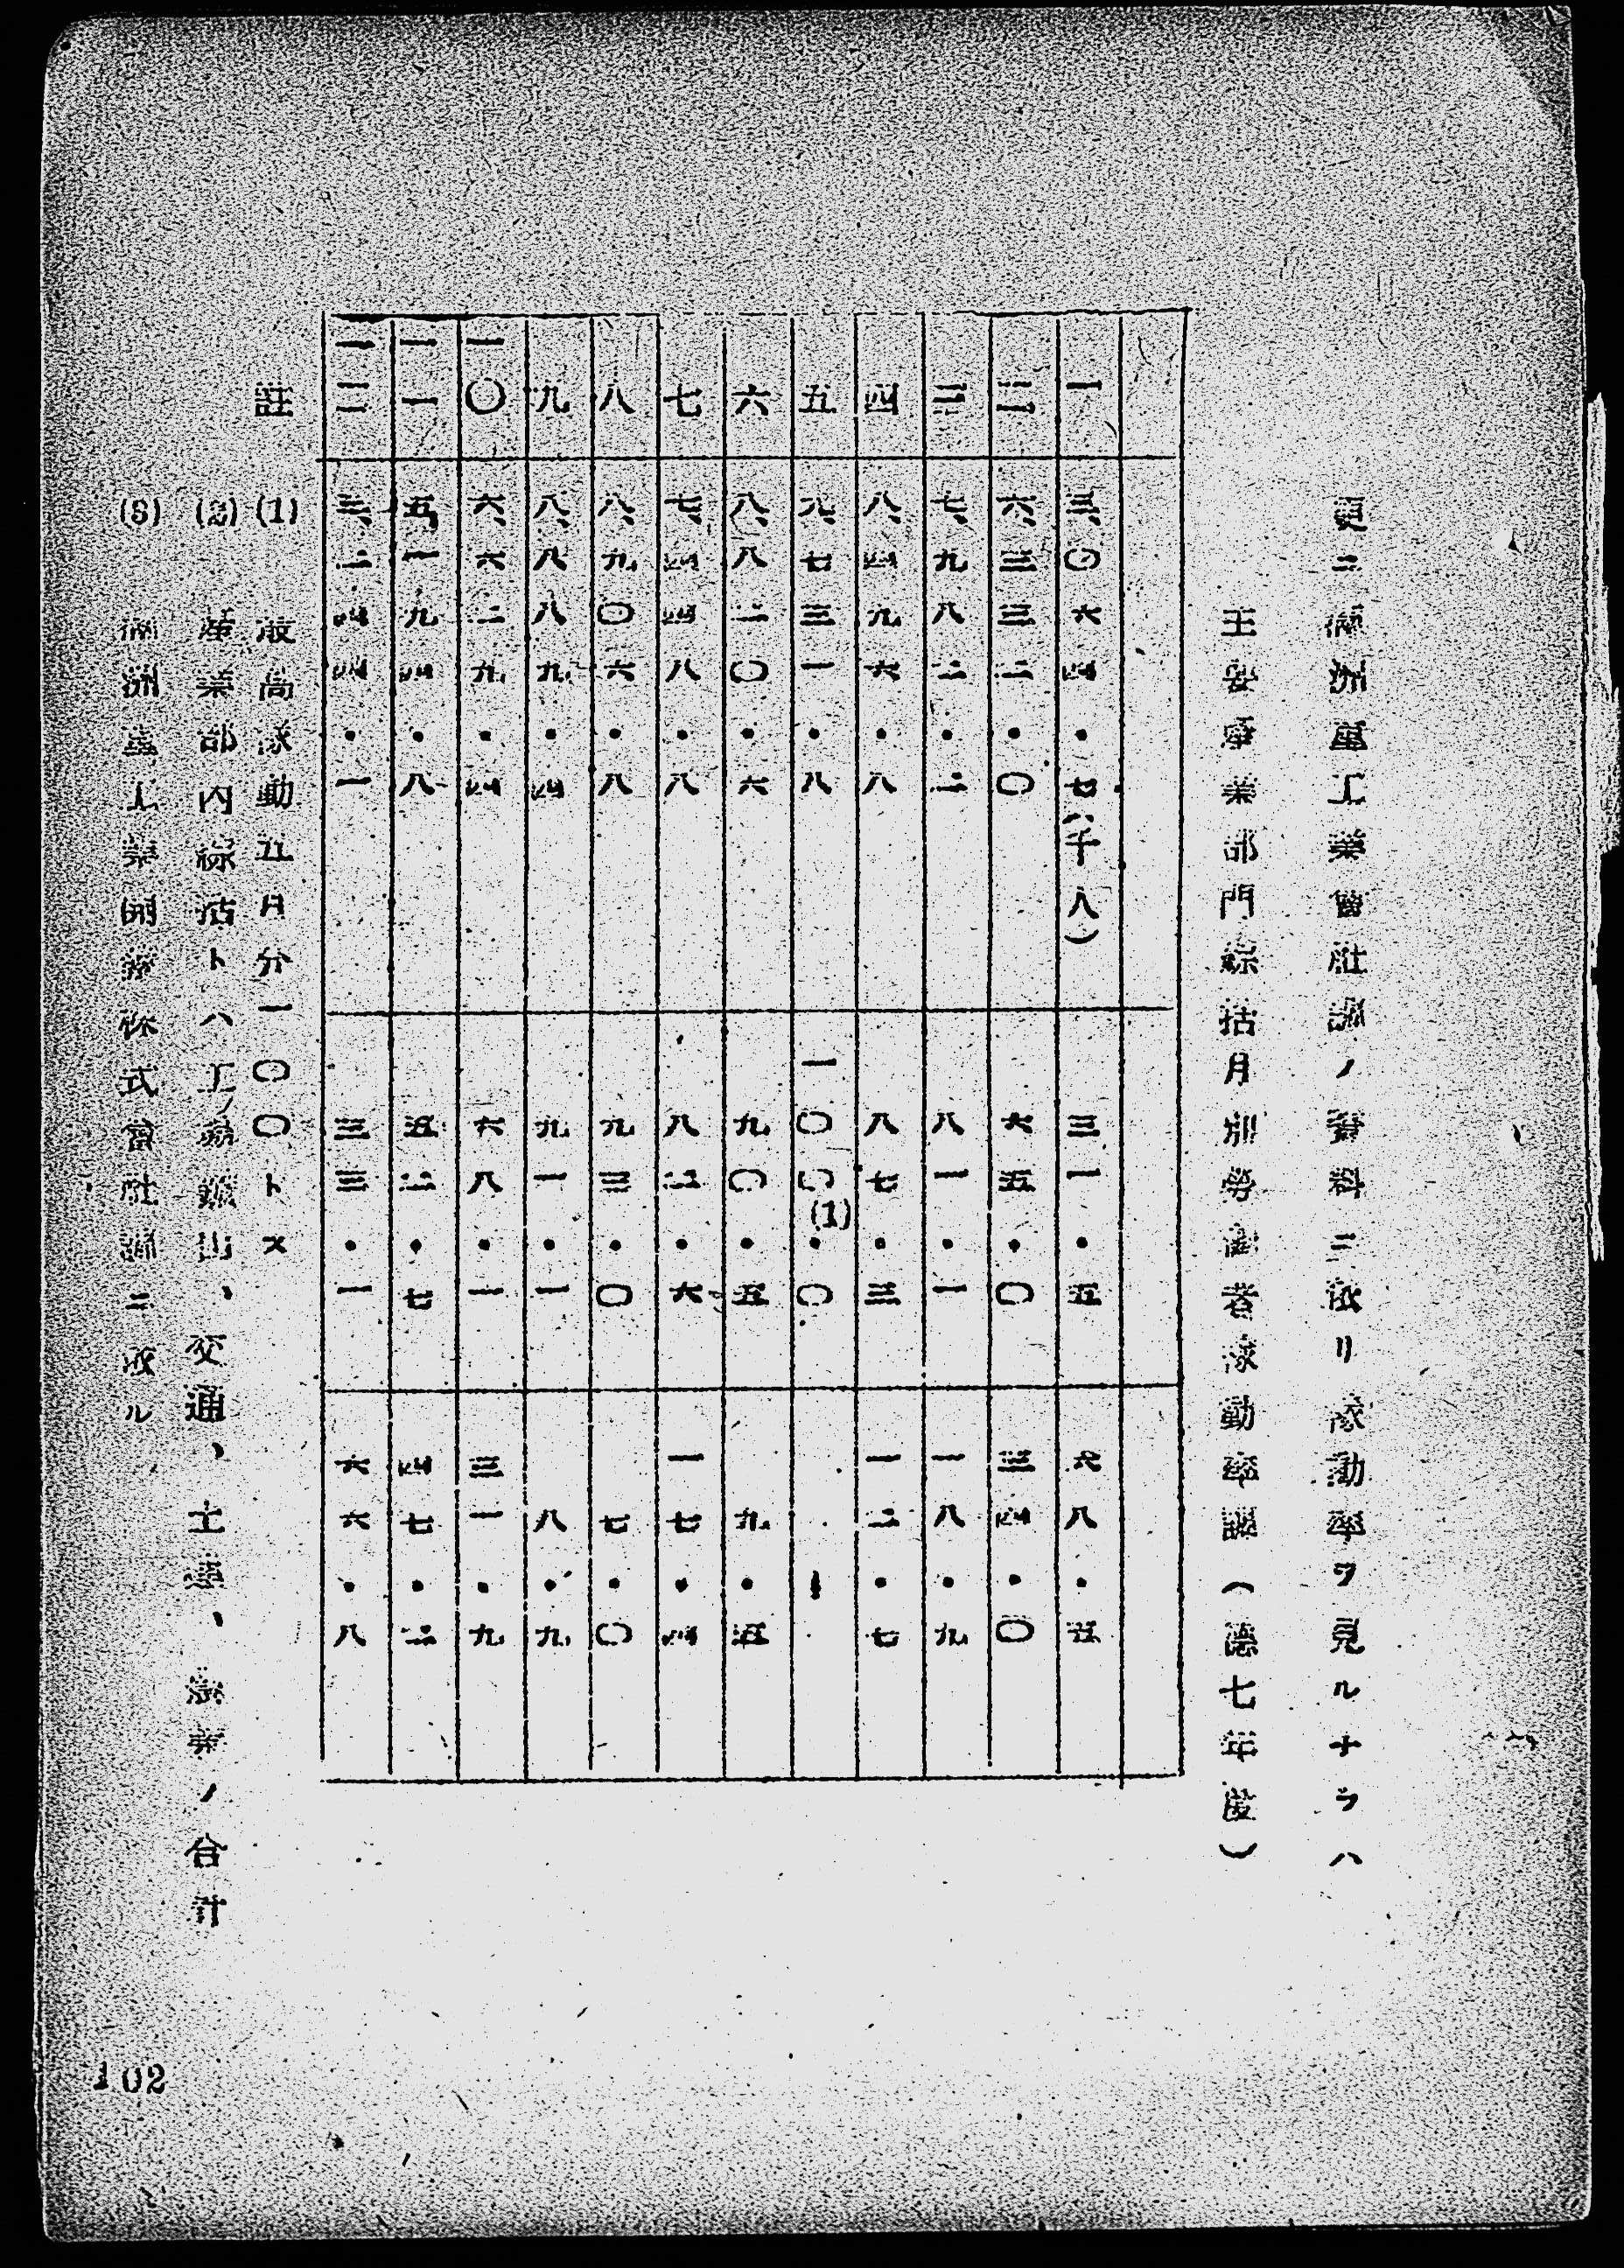 更ニ満洲重工業會社調ノ資料ニ依リ稼動率ヲ見ルナラハ
主要事業部門綜括月別勞働者稼動率調（康德七年度）
一 三、〇六四・七（千人） 三一・五 六八・五
二 六、三三二・〇 六五・〇 三四・〇
三 七、九八二・二 八一・一 一八・九
四 八、四九六・八 八七・三 一二・七
五 九、七三一・八 一〇〇(1)・〇
六 八、八二〇・六 九〇・五 九・五
七 七、四四八・八 八二・六 一七・四
八 八、九〇六・八 九三・〇 七・〇
九 八、八八九・四 九一・一 八・九
一〇 六、六二九・四 六八・一 三一・九
一一 五、一九四・八 五二・七 四七・二
一二 三、二四四・一 三三・一 六六・八
註 (1) 最高稼動五月分一〇〇トス
(2) 產業部內綜括トハ工、鑛山、交通、土建、林業ノ合計
(3) 滿洲重工業開發株式會社調ニ依ル
102